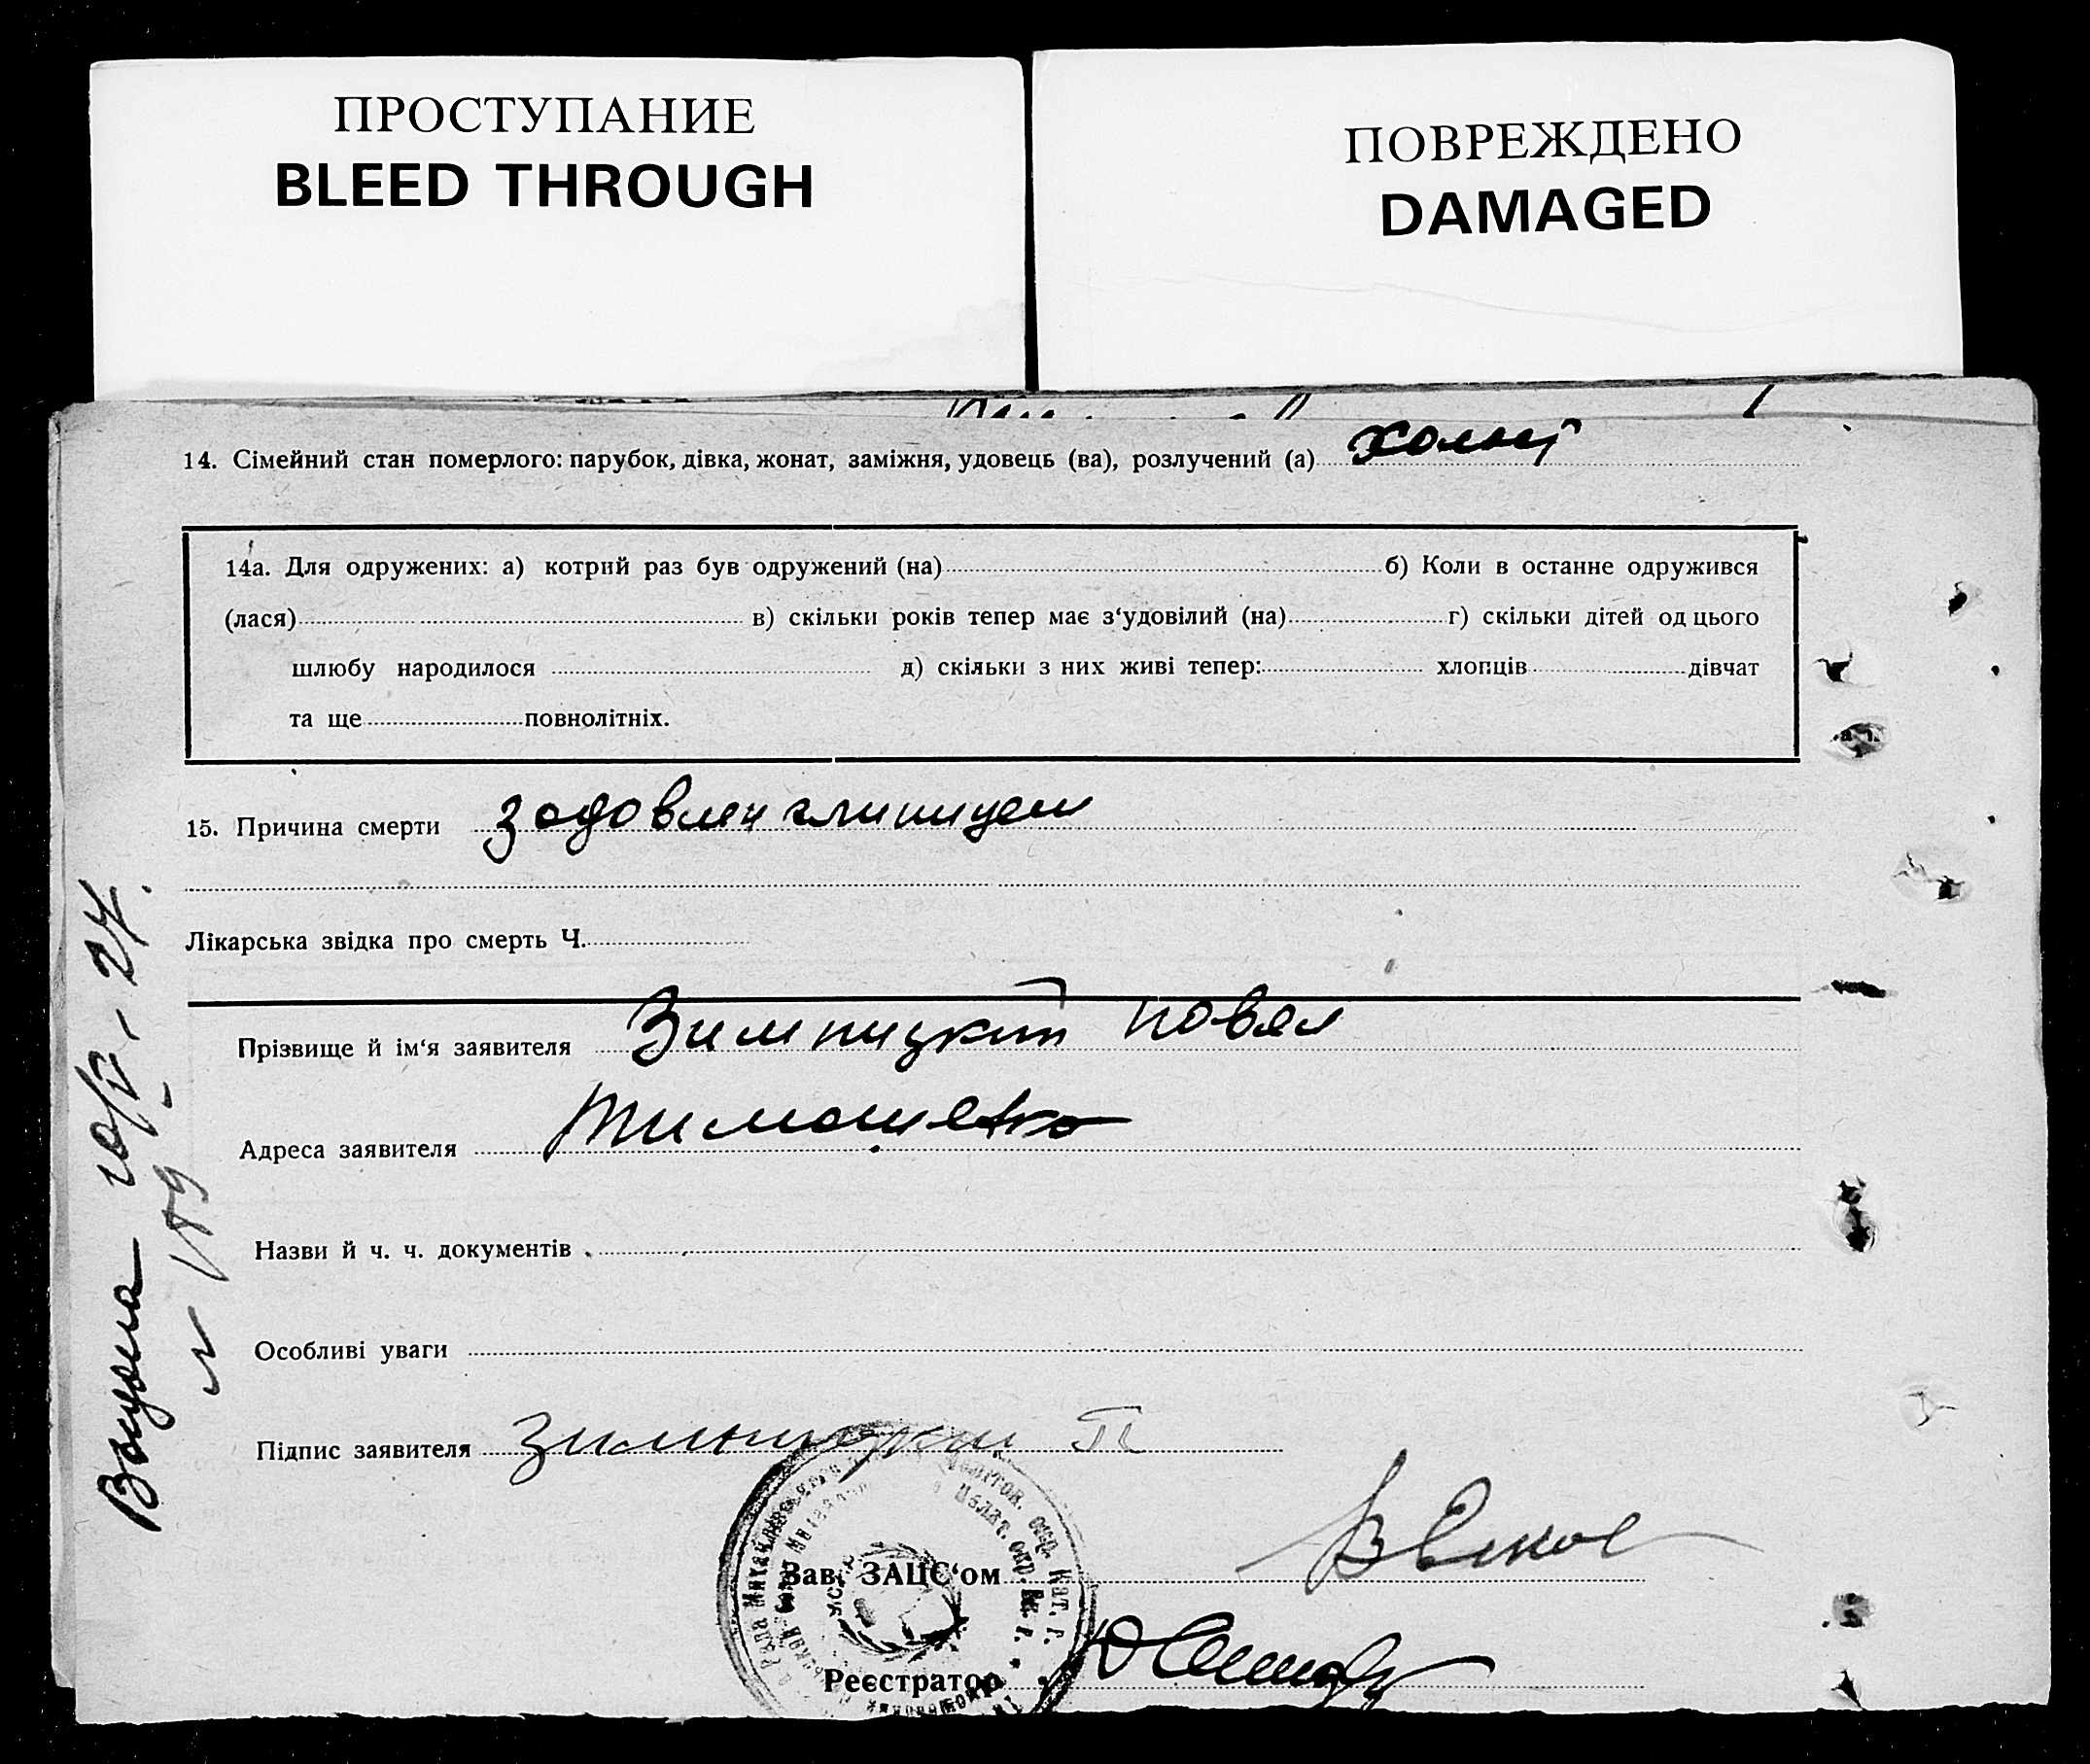 ПРОСТУПАНИЕ
BLEED THROUGH
ПОВРЕЖДЕНО
DAMAGED
14. Сімейний стан померлого: парубок, дівка, жонат, заміжня, удовець (ва), розлучений (а)
14а. Для одружених: а) котрий раз був одружений (на) б) Коли в останне одружився
(лася) в) скільки років тепер має з‘удовілий (на) г) скільки дітей од цього
шлюбу народилося д) скільки з них живі тепер: хлопців дівчат
та ще повнолітніх.
15. Причина смерти
Лікарська звідка про смерть Ч.
Прізвище й ім‘я заявителя Зимницкий Повел
Адреса заявителя
Назви й ч. ч. документів
Особливі уваги
Підпис заявителя Зимницкий П
Зав. ЗАЦС‘ом
Реєстратор